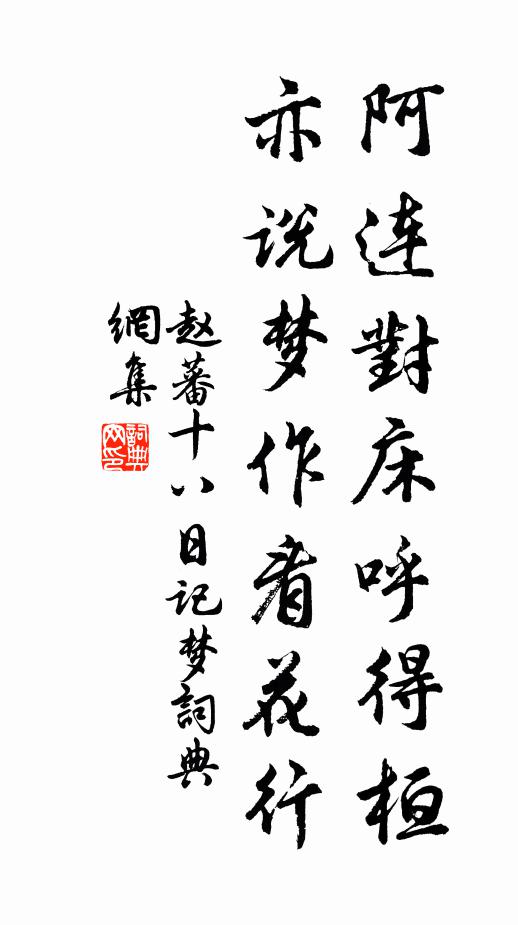 阿连對床呼得桓
亦说梦作看花行
赵蕃十八日记梦詞典
網集
詞典网印